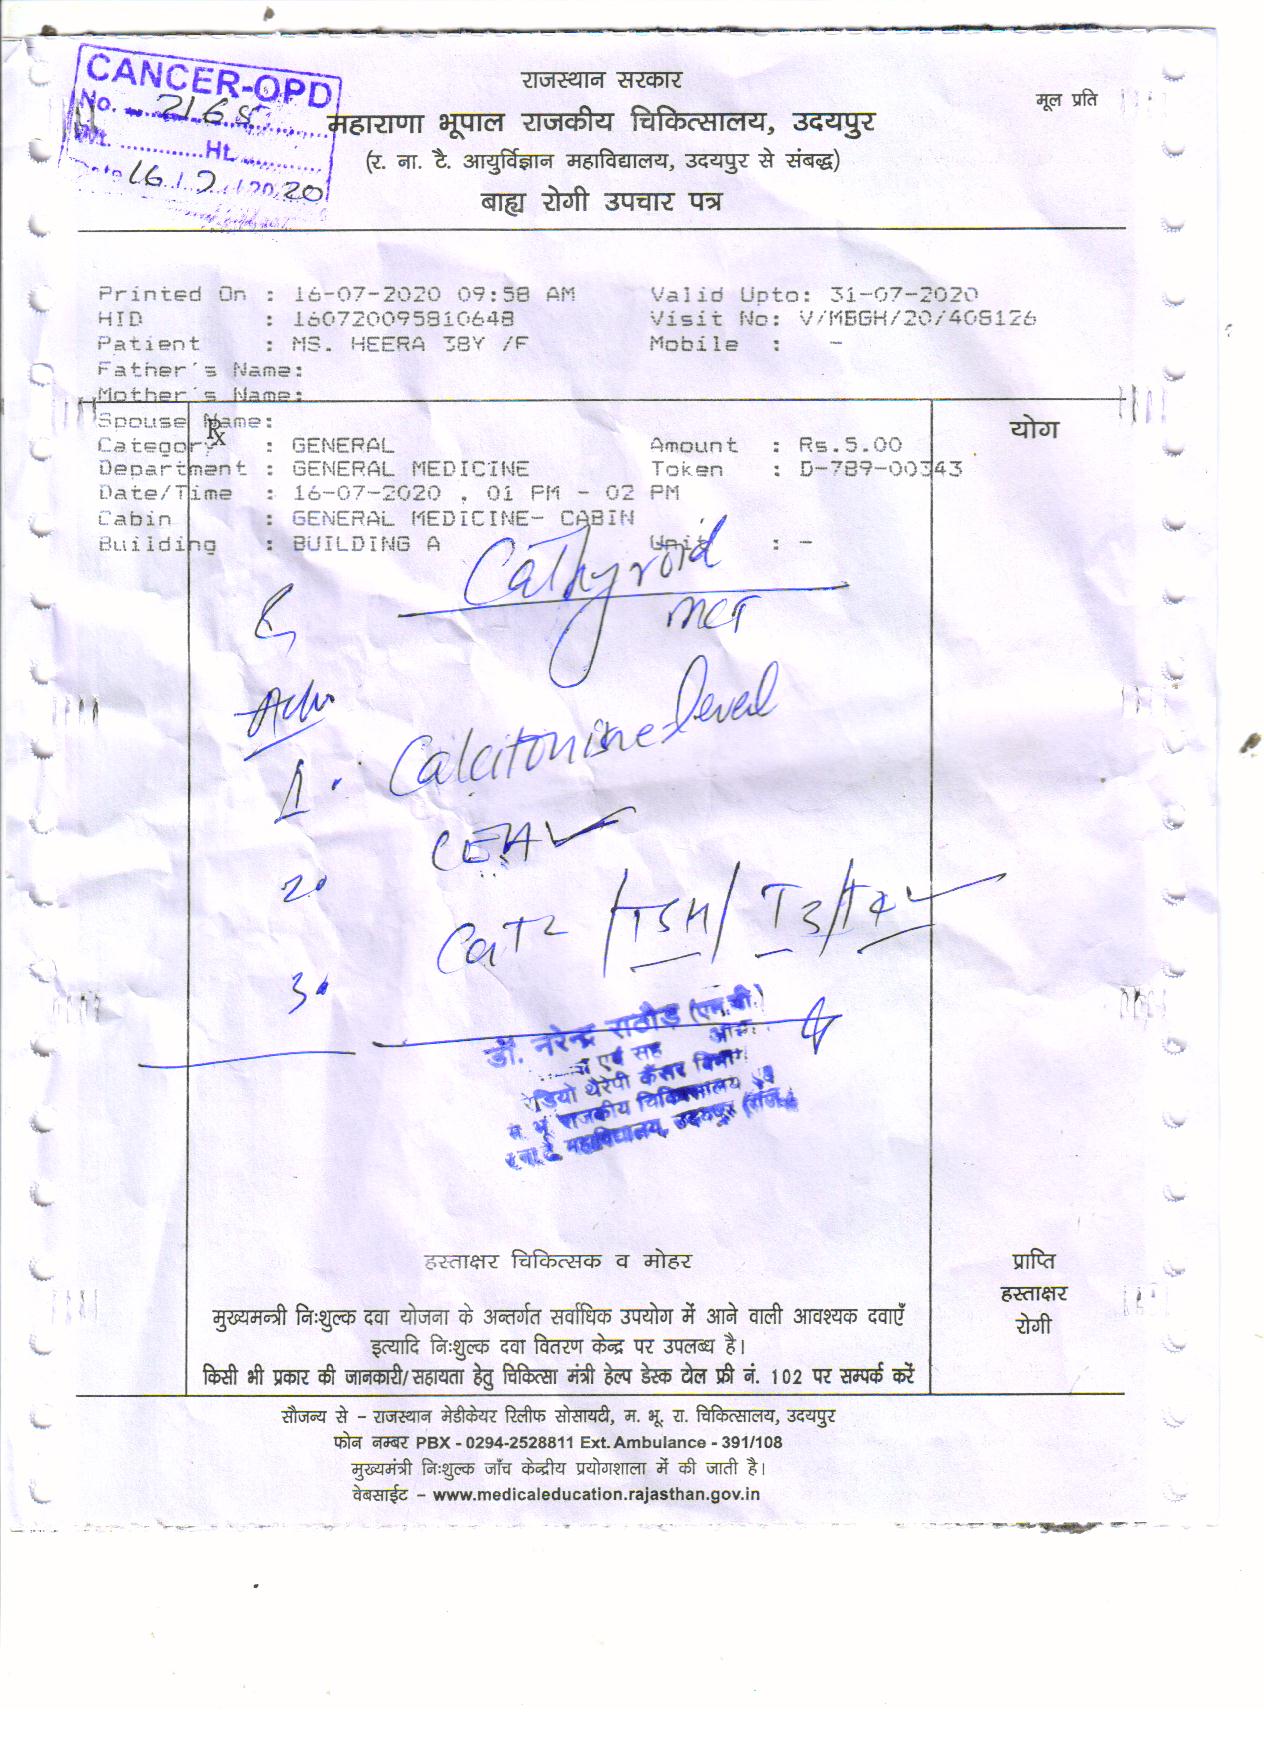 CANCER-OPD
No. 2168
Ht.
Date 16 / 7 / 2020
राजस्थान सरकार
मूल प्रति
महाराणा भूपाल राजकीय चिकित्सालय, उदयपुर
(र. ना. टै. आयुर्विज्ञान महाविद्यालय, उदयपुर से संबद्ध)
बाह्य रोगी उपचार पत्र
Printed On : 16-07-2020 09:58 AM Valid Upto: 31-07-2020
HID : 160720095810648 Visit No: V/MBGH/20/408126
Patient : MS. HEERA 38Y /F Mobile : -
Father's Name:
Mother's Name:
Spouse Name:
Rx
योग
Category : GENERAL Amount : Rs.5.00
Department : GENERAL MEDICINE Token : D-789-00343
Date/Time : 16-07-2020 , 01 PM - 02 PM
Cabin : GENERAL MEDICINE- CABIN
Building : BUILDING A Unit : -
Ca Thyroid
MCT
Adv.
1. Calcitonine level
CEA
2.
/TSH/ T3/T4
3.
डॉ. नरेन्द्र राठौड़ (एम.डी.)
एवं सह
रेडियो थैरेपी कैंसर
म भू राजकीय चिकित्सालय
महाविद्यालय, उदयपुर (राज.)
हस्ताक्षर चिकित्सक व मोहर
प्राप्ति
हस्ताक्षर
रोगी
मुख्यमन्त्री निःशुल्क दवा योजना के अन्तर्गत सर्वाधिक उपयोग में आने वाली आवश्यक दवाएँ
इत्यादि निःशुल्क दवा वितरण केन्द्र पर उपलब्ध है।
किसी भी प्रकार की जानकारी/सहायता हेतु चिकित्सा मंत्री हेल्प डेस्क टोल फ्री नं. 102 पर सम्पर्क करें
सौजन्य से – राजस्थान मेडीकेयर रिलीफ सोसायटी, म. भू. रा. चिकित्सालय, उदयपुर
फोन नम्बर PBX - 0294-2528811 Ext. Ambulance - 391/108
मुख्यमंत्री निःशुल्क जाँच केन्द्रीय प्रयोगशाला में की जाती है।
वेबसाईट – www.medicaleducation.rajasthan.gov.in